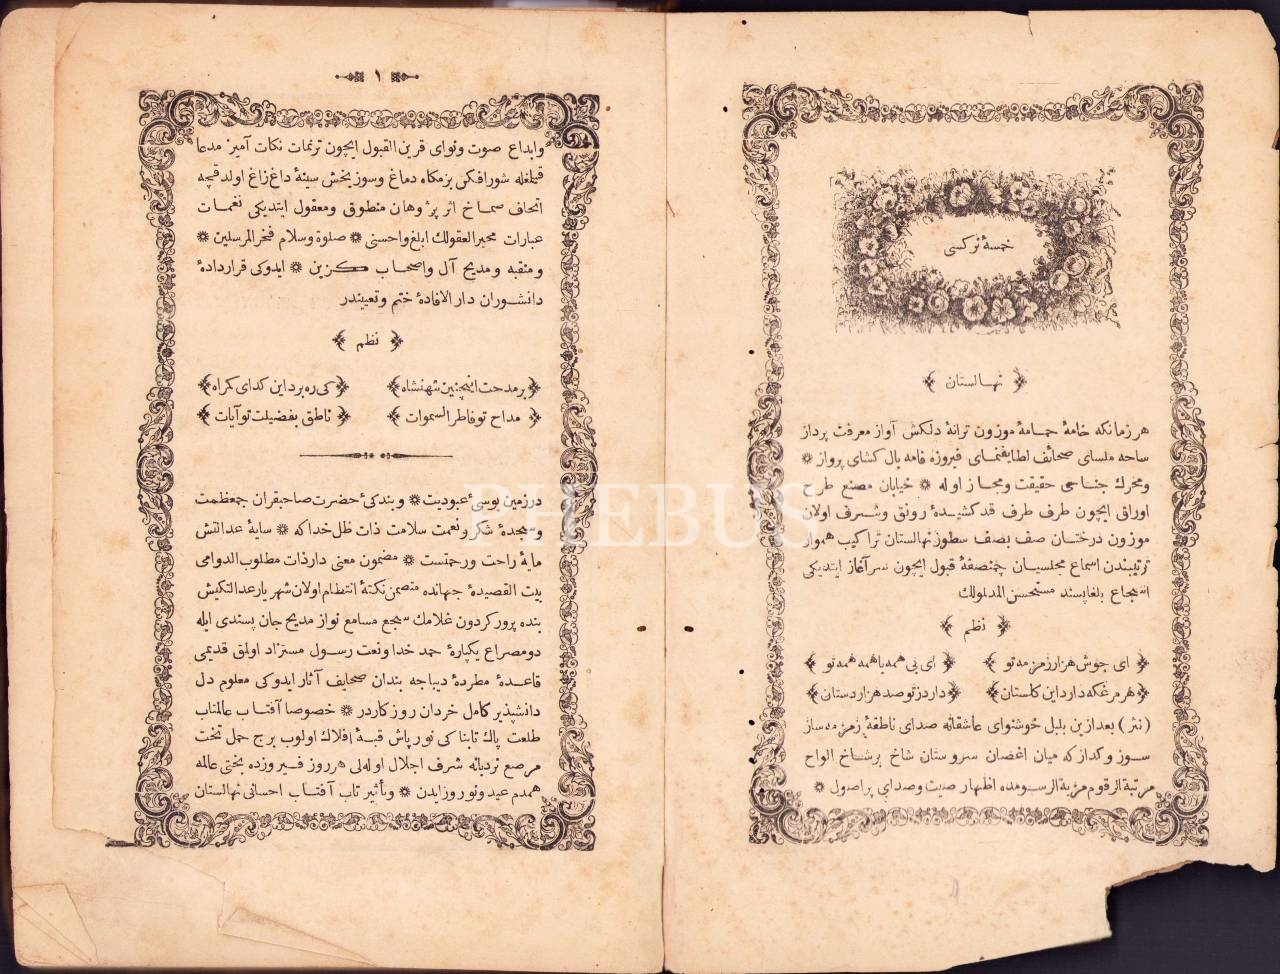 خمسهٔ نركسی
نهالستان
هر زمانكه خامهٔ حمامهٔ موزون ترانهٔ دلكش آواز معرفت پرداز
ساحه ملسای صحائف لطایفنمای فیروزه فامه بال كشای پرواز ❋
ومحرك جناحی حقیقت ومجاز اوله ❋ خیابان مصنع طرح
اوراق ایچون طرف طرف قد كشیدهٔ رونق وشرف اولان
موزون درختان صف بصف سطور نهالستان تراكیب هموار
ترتیبندن اسماع مجلسیان چمنصفهٔ قبول ایچون سر آغاز ایتدیكی
اسجاع بلغاپسند مستحسن المدلولك
نظم
ای جوش هزار زمزمه تو
ای بی همه با همه همه تو
هر مرغكه دارد این كلستان
دارد ز تو صد هزار دستان
(نثر) بعد ازین بلبل خوشنوای عاشقانه صدای ناطقهٔ زمزمه ساز
سوز وكداز كه میان اغصان سروستان شاخ برشاخ الواح
مرتبة الرقوم مزیة الرسومده اظهار صیت وصدای پراصول ❋
١
وابداع صوت ونوای قرین القبول ایچون ترنمات نكات آمیز مدعا
قیلغله شورافكن بزمكاه دماغ وسوزبخش سینهٔ داغ زاغ اولدقچه
اتحاف صماخ اثر پرهٔ وهان منطوق ومعقول ایتدیكی نغمات
عبارات محیر العقولك ابلغ واحسنی ❋ صلوة وسلام فخر المرسلین ❋
ومنقبه ومدیح آل واصحاب كزین ❋ ایدوكی قراردادهٔ
دانشوران دار الافادهٔ ختم وتعییندر
نظم
بر مدحت اینچنین شهنشاه
كی ره برد این كدای كمراه
مداح تو فاطر السموات
ناطق بفضیلت تو آیات
درزمین بوسئ عبودیت ❋ وبندكئ حضرت صاحبقران جمعظمت
وسجدهٔ شكر ونعمت سلامت ذات ظل خدا كه ❋ سایهٔ عدالتش
مایهٔ راحت ورحمتست ❋ مضمون معنی دارذات مطلوب الدوامی
بیت القصیدهٔ جهانده متضمن نكتهٔ انتظام اولان شهریار عدالتكیش
بنده پرور كردون غلامك سجع مسامع نواز مدیح جان پسندی ایله
دومصراع یكپارهٔ حمد خدا ونعت رسول مستزاد اولمق قدیمی
قاعدهٔ مطردهٔ دیباجه بندان صحایف آثار ایدوكی معلوم دل
دانشپذیر كامل خردان روزكاردر ❋ خصوصا آفتاب عالمتاب
طلعت پاك تابناكی نور پاش قبهٔ افلاك اولوب برج حمل تخت
مرصع نردبانه شرف اجلال اوله لی هر روز فیروزده بختی عالمه
همدم عید ونوروز ایدن ❋ وتأثیر تاب آفتاب احسانی نهالستان
PHEBUS